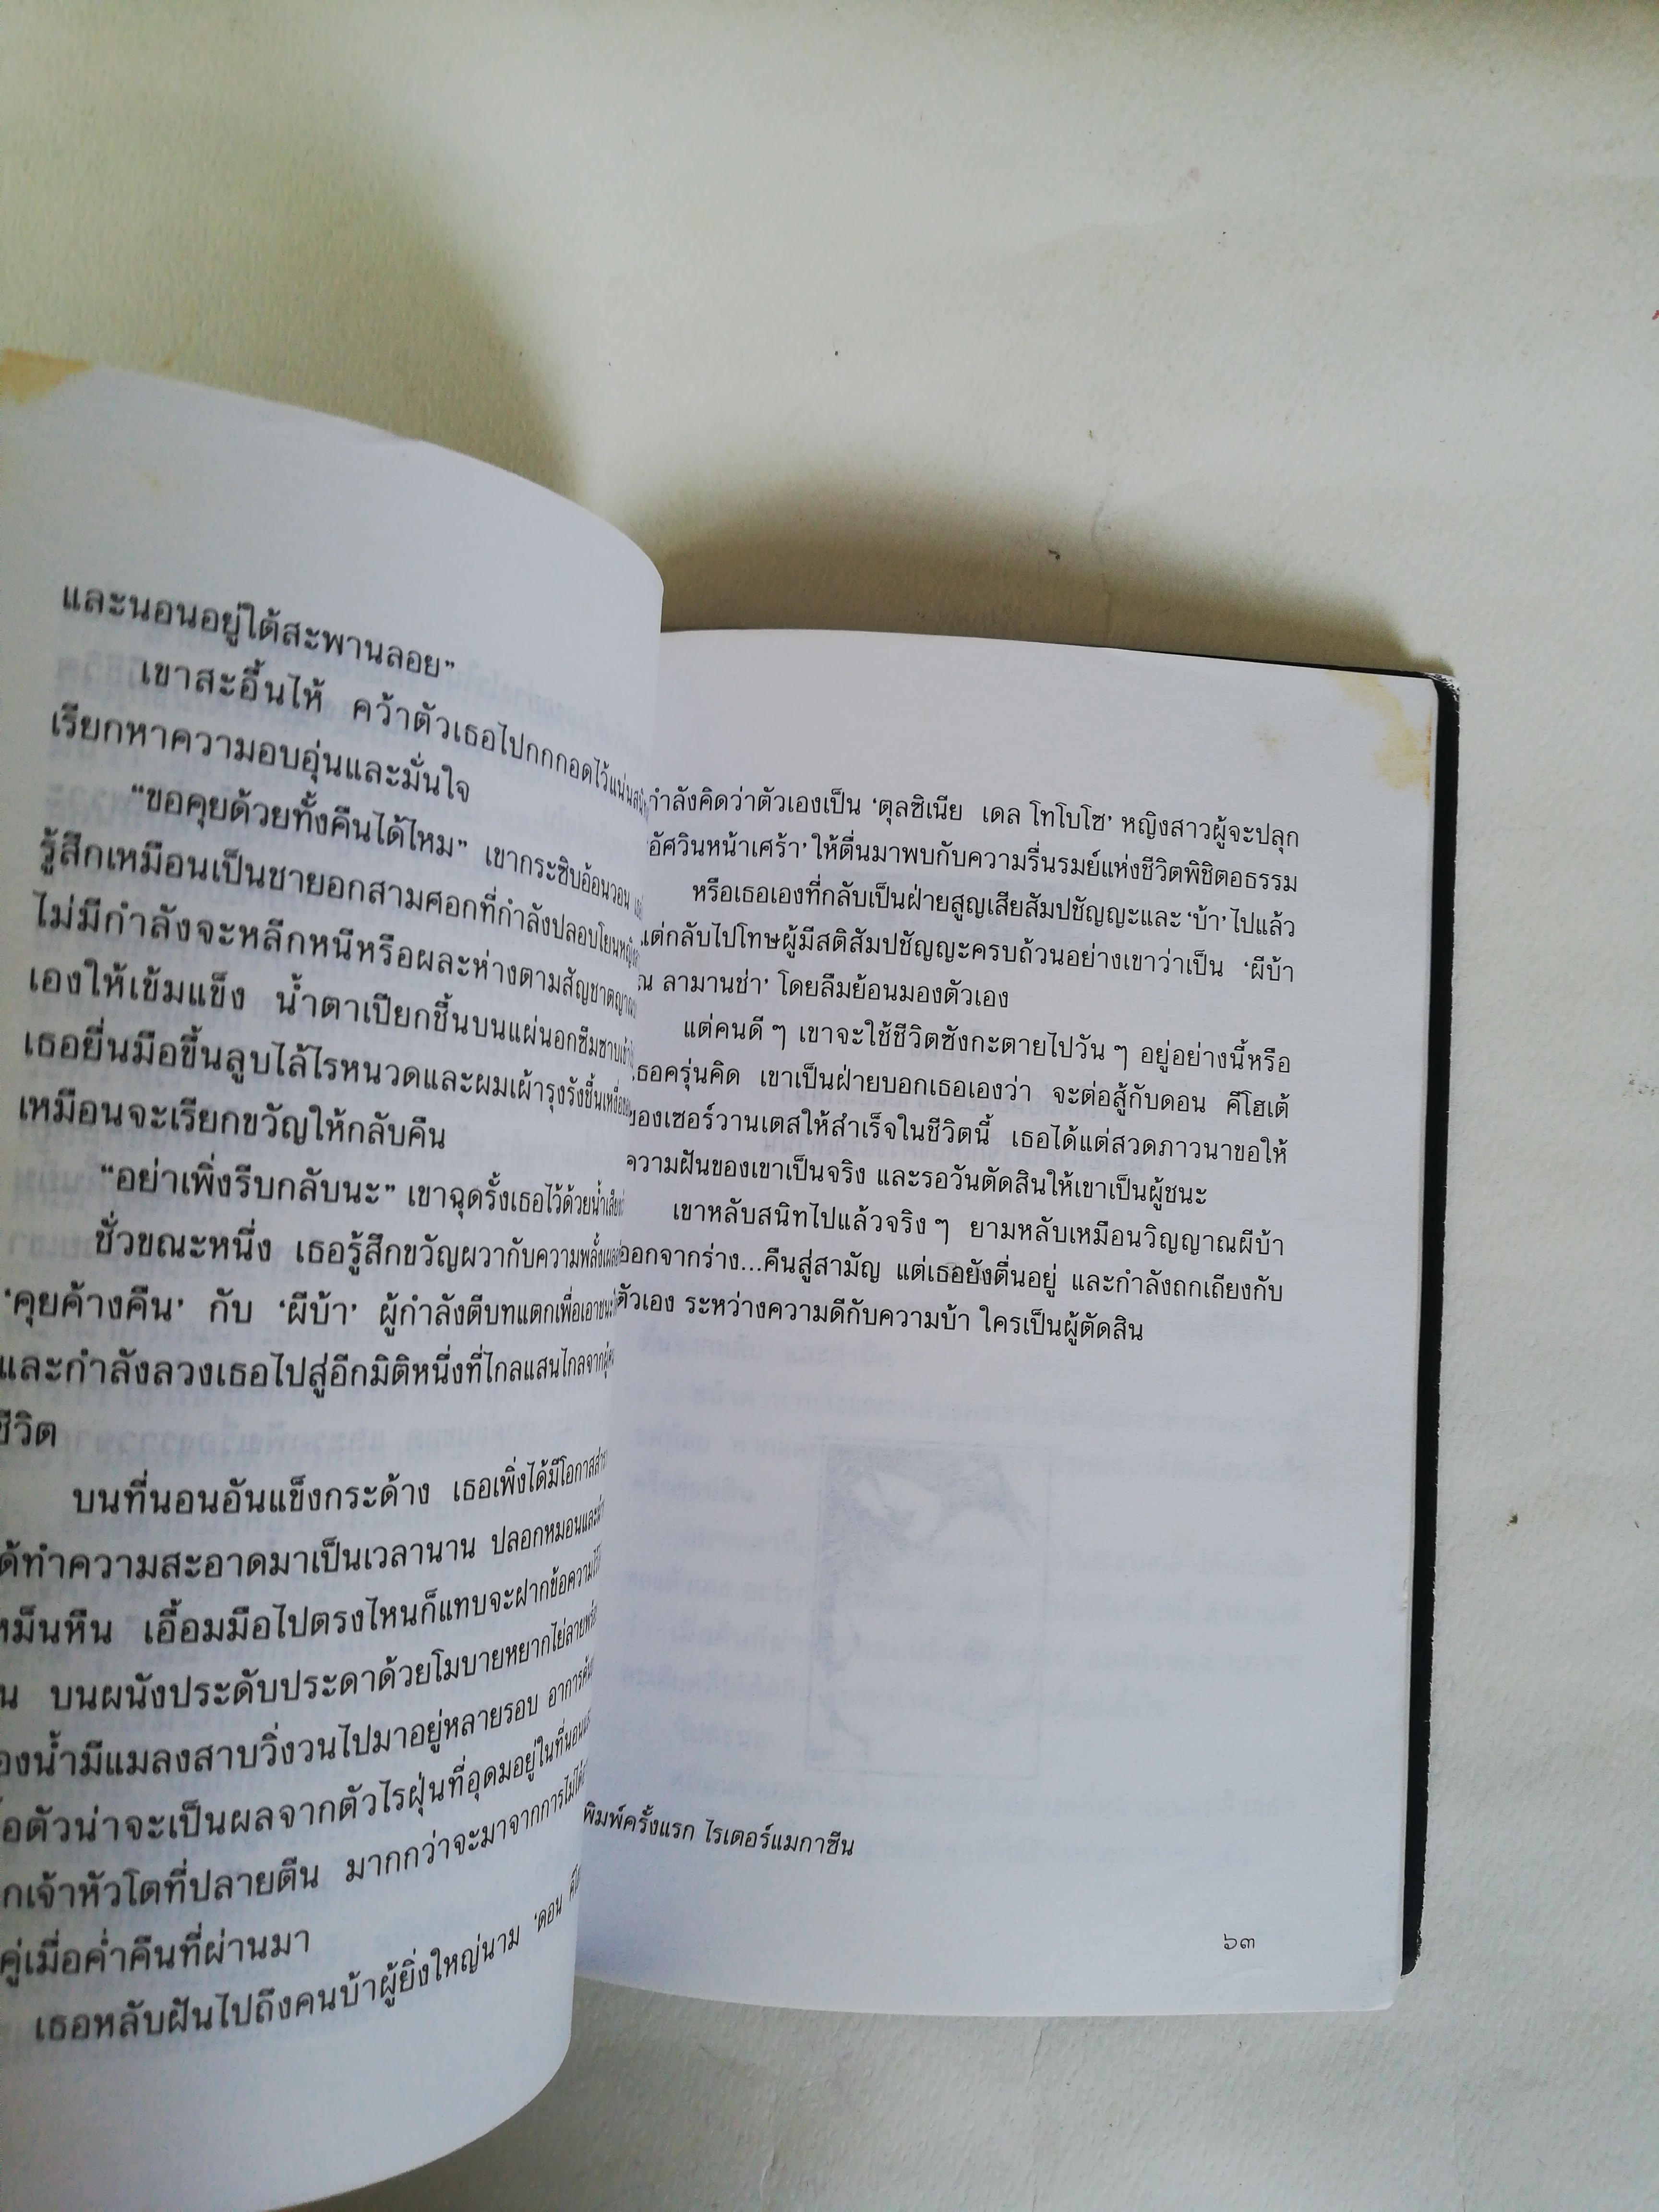 และนอนอยู่ใต้สะพานลอย”
เขาสะอื้นไห้ คว้าตัวเธอไปกกกอดไว้แน่น
เรียกหาความอบอุ่นและมั่นใจ
“ขอคุยด้วยทั้งคืนได้ไหม” เขากระซิบอ้อนวอน
รู้สึกเหมือนเป็นชายอกสามศอกที่กำลังปลอบโยน
ไม่มีกำลังจะหลีกหนีหรือผละห่างตามสัญชาตญาณ
เองให้เข้มแข็ง น้ำตาเปียกชื้นบนแผ่นอกซึมซาบ
เธอยื่นมือขึ้นลูบไล้ไรหนวดและผมเผ้ารุงรังชื้นเหงื่อ
เหมือนจะเรียกขวัญให้กลับคืน
“อย่าเพิ่งรีบกลับนะ” เขาฉุดรั้งเธอไว้ด้วย
ชั่วขณะหนึ่ง เธอรู้สึกขวัญผวากับความ
‘คุยค้างคืน’ กับ ‘ผีบ้า’ ผู้กำลังตีบทแตกเพื่อเอาชนะ
และกำลังลวงเธอไปสู่อีกมิติหนึ่งที่ไกลแสนไกลจาก
ชีวิต
บนที่นอนอันแข็งกระด้าง เธอเพิ่งได้มีโอกาส
ได้ทำความสะอาดมาเป็นเวลานาน ปลอกหมอนและ
เหม็นหืน เอื้อมมือไปตรงไหนก็แทบจะฝากข้อความ
บนผนังประดับประดาด้วยโมบายหยากไย่ลาย
องน้ำมีแมลงสาบวิ่งวนไปมาอยู่หลายรอบ อาการ
อตัวน่าจะเป็นผลจากตัวไรฝุ่นที่อุดมอยู่ในที่นอน
กเจ้าหัวโตที่ปลายตีน มากกว่าจะมาจากการไม่ได้
คู่เมื่อค่ำคืนที่ผ่านมา
เธอหลับฝันไปถึงคนบ้าผู้ยิ่งใหญ่นาม ‘ดอน
กำลังคิดว่าตัวเองเป็น ‘ดุลซิเนีย เดล โทโบโซ’ หญิงสาวผู้จะปลุก
‘อัศวินหน้าเศร้า’ ให้ตื่นมาพบกับความรื่นรมย์แห่งชีวิตพิชิตอธรรม
หรือเธอเองที่กลับเป็นฝ่ายสูญเสียสัมปชัญญะและ ‘บ้า’ ไปแล้ว
แต่กลับไปโทษผู้มีสติสัมปชัญญะครบถ้วนอย่างเขาว่าเป็น ‘ผีบ้า
ณ ลามานช่า’ โดยลืมย้อนมองตัวเอง
แต่คนดี ๆ เขาจะใช้ชีวิตซังกะตายไปวัน ๆ อยู่อย่างนี้หรือ
เธอครุ่นคิด เขาเป็นฝ่ายบอกเธอเองว่า จะต่อสู้กับดอน คีโฮเต้
ของเซอร์วานเตสให้สำเร็จในชีวิตนี้ เธอได้แต่สวดภาวนาขอให้
ความฝันของเขาเป็นจริง และรอวันตัดสินให้เขาเป็นผู้ชนะ
เขาหลับสนิทไปแล้วจริง ๆ ยามหลับเหมือนวิญญาณผีบ้า
ออกจากร่าง...คืนสู่สามัญ แต่เธอยังตื่นอยู่ และกำลังถกเถียงกับ
ตัวเอง ระหว่างความดีกับความบ้า ใครเป็นผู้ตัดสิน
พิมพ์ครั้งแรก ไรเตอร์แมกาซีน
๖๓